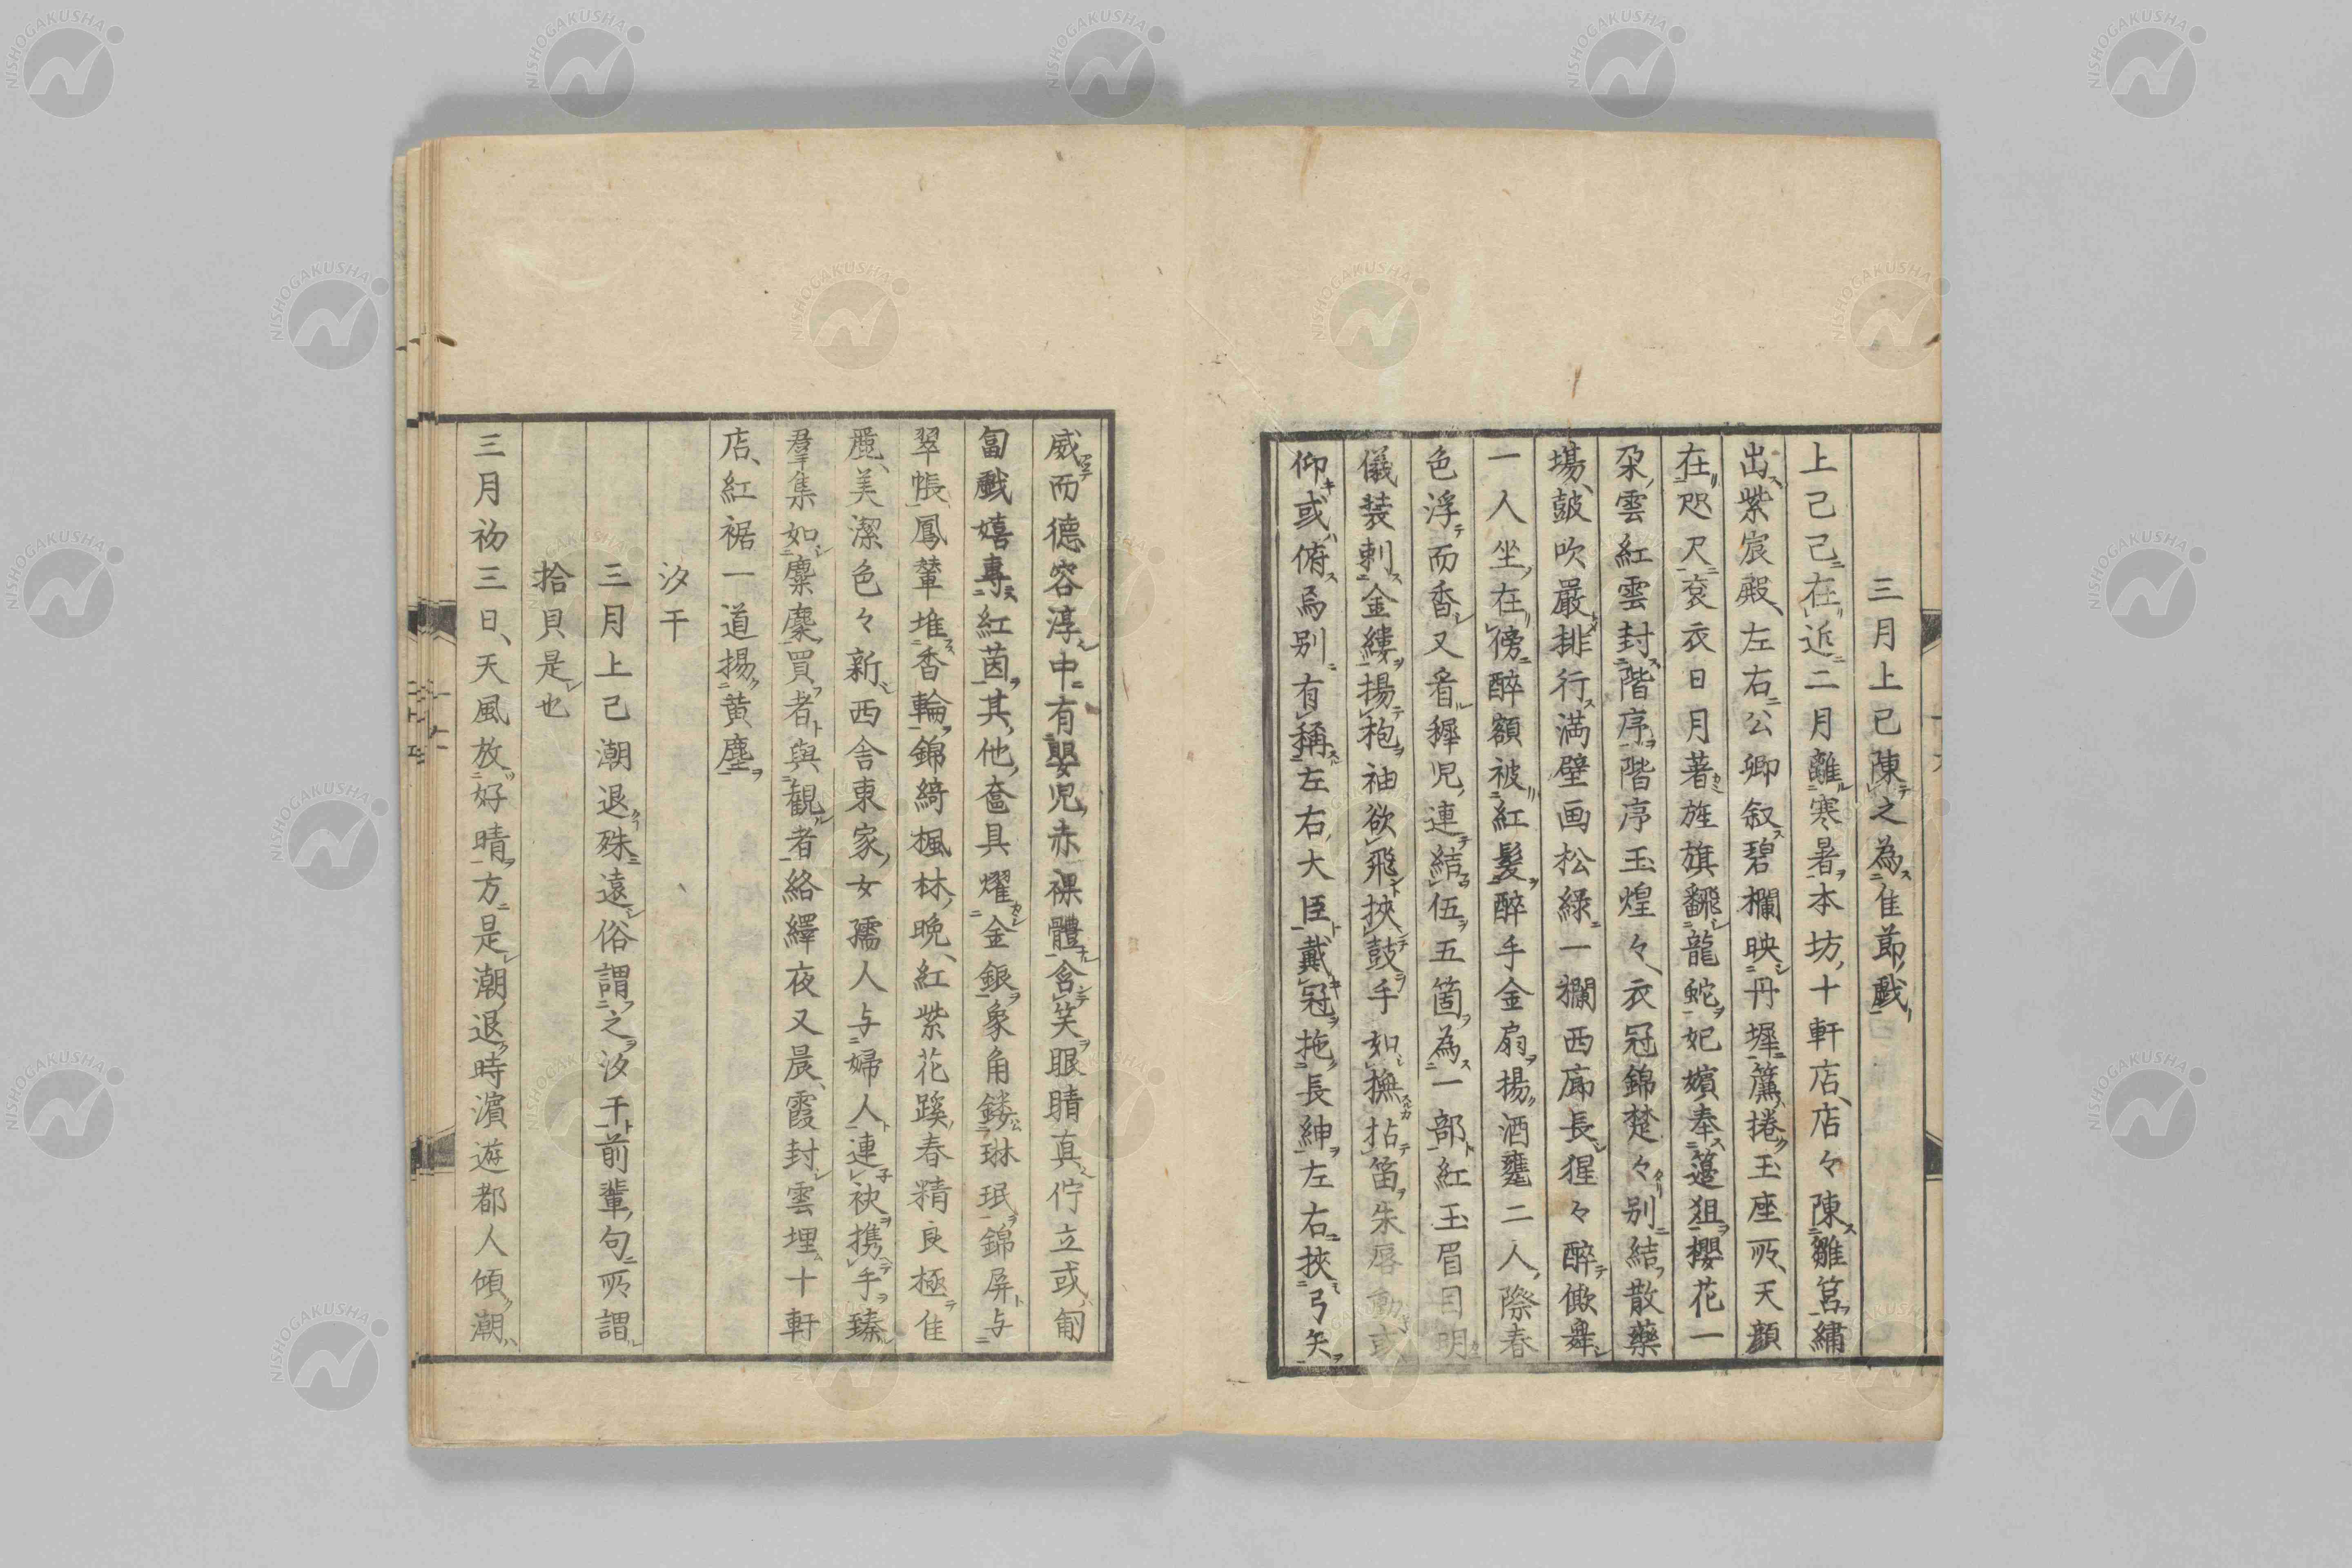 三月上巳陳之為佳節戲
上己己在近二月離寒暑本坊十軒店店々陳雛筥繡
出紫宸殿左右公卿叙碧欄映丹墀簾捲玉座所天顏
在咫尺袞衣日月著旌旗翻龍蛇妃嬪奉簉狙櫻花一
朶雲紅雲封階序階序玉煌々衣冠錦楚々別結散藥
場鼓吹嚴排行満壁画松綠一欄西廊長猩々醉僛舞
一人坐在傍醉額被紅髮醉手金扇揚酒甕二人際春
色浮而香又看穉児連結伍五箇為一部紅玉眉目明
儀装刺金縷揚袍袖欲飛挾鼓手如撫拈笛朱唇動或
仰或俯烏別有稱左右大臣戴冠拖長紳左右挾弓矢
威而德容淳中有嬰児赤裸體含笑眼睛真佇立或匍
匐戲嬉專紅茵其他奩具燿金銀象角鏤琳珉錦屏与
翠帳鳳輦堆香輪錦綺楓林晩紅紫花蹊春精良極佳
麗美潔色々新西舎東家女孺人与婦人連袂携手臻
羣集如麇麇買者與觀者絡繹夜又晨霞封雲埋十軒
店紅裾一道揚黄塵
汐干
三月上己潮退殊遠俗謂之汐干前輩句所謂
拾貝是也
三月初三日天風放好晴方是潮退時濵遊都人傾潮